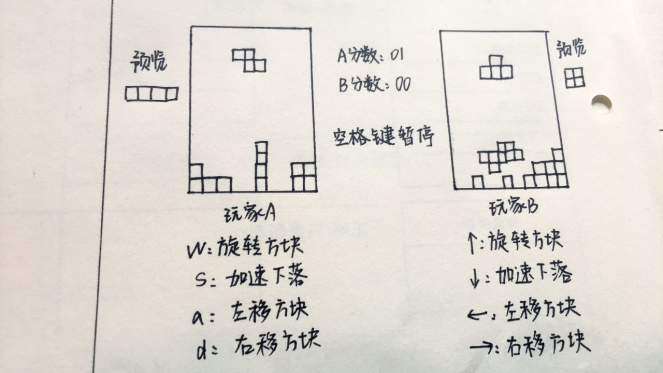 预览
A分数：01
B分数：00
空格键暂停
预览
玩家A
W：旋转方块
s：加速下落
a：左移方块
d：右移方块
玩家B
↑：旋转方块
↓：加速下落
←：左移方块
→：右移方块